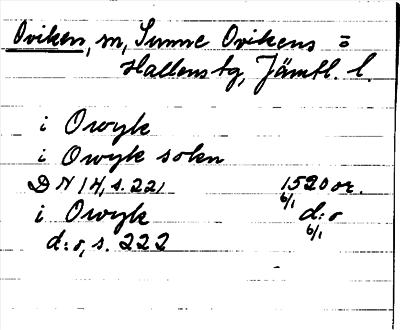 Oviken, m, Sunne Ovikens o
Hallens tg, Jämtl. l.
i Owyk
i Owyk sokn
DN 14, s. 221 1520 or.
6/1
i Owyk d:o
d:o, s. 222 6/1